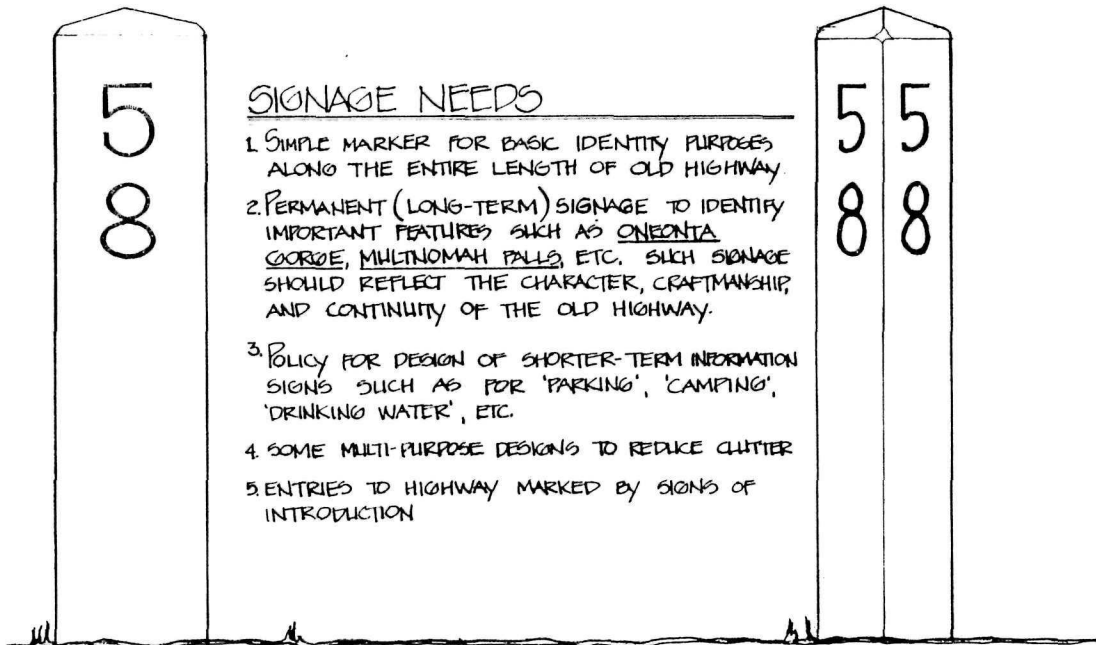 5
8
SIGNAGE NEEDS
1. SIMPLE MARKER FOR BASIC IDENTITY PURPOSES
ALONG THE ENTIRE LENGTH OF OLD HIGHWAY.
2. PERMANENT (LONG-TERM) SIGNAGE TO IDENTIFY
IMPORTANT FEATURES SUCH AS ONEONTA
GORGE, MULTNOMAH FALLS, ETC. SUCH SIGNAGE
SHOULD REFLECT THE CHARACTER, CRAFTMANSHIP,
AND CONTINUITY OF THE OLD HIGHWAY.
3. POLICY FOR DESIGN OF SHORTER-TERM INFORMATION
SIGNS SUCH AS FOR 'PARKING', 'CAMPING',
'DRINKING WATER', ETC.
4. SOME MULTI-PURPOSE DESIGNS TO REDUCE CLUTTER
5. ENTRIES TO HIGHWAY MARKED BY SIGNS OF
INTRODUCTION
5 5
8 8